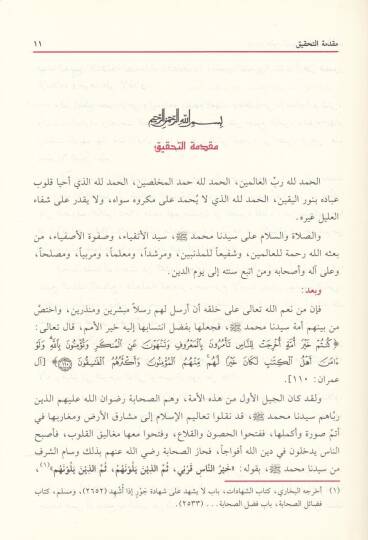 مقدمة التحقيق ١١
بسم الله الرحمن الرحيم
مقدمة التحقيق
الحمد لله ربّ العالمين، الحمد لله حمد المخلصين، الحمد لله الذي أحيا قلوب
عباده بنور اليقين، الحمد لله الذي لا يُحمد على مكروه سواه، ولا يقدر على شفاء
العليل غيره.
والصلاة والسلام على سيدنا محمد ﷺ، سيد الأتقياء، وصفوة الأصفياء، من
بعثه الله رحمة للعالمين، وشفيعاً للمذنبين، ومرشداً، ومعلماً، ومربياً، ومصلحاً،
وعلى آله وأصحابه ومن اتبع سنته إلى يوم الدين.
وبعد:
فإن من نعم الله تعالى على خلقه أن أرسل لهم رسلاً مبشرين ومنذرين، واختصّ
من بينهم أمة سيدنا محمد ﷺ، فجعلها بفضل انتسابها إليه خير الأمم، قال تعالى:
﴿كُنتُمْ خَيْرَ أُمَّةٍ أُخْرِجَتْ لِلنَّاسِ تَأْمُرُونَ بِالْمَعْرُوفِ وَتَنْهَوْنَ عَنِ الْمُنكَرِ وَتُؤْمِنُونَ بِاللَّهِ وَلَوْ
ءَامَنَ أَهْلُ الْكِتَٰبِ لَكَانَ خَيْرًا لَّهُم مِّنْهُمُ الْمُؤْمِنُونَ وَأَكْثَرُهُمُ الْفَٰسِقُونَ ١١٠﴾ [آل
عمران: ١١٠].
ولقد كان الجيل الأول من هذه الأمة، وهم الصحابة رضوان الله عليهم الذين
ربّاهم سيدنا محمد ﷺ، قد نقلوا تعاليم الإسلام إلى مشارق الأرض ومغاربها في
أتمّ صورة وأكملها، ففتحوا الحصون والقلاع، وفتحوا معها مغاليق القلوب، فأصبح
الناس يدخلون في دين الله أفواجاً، فحاز الصحابة رضي الله عنهم بذلك وسام الشرف
من سيدنا محمد ﷺ، بقوله: «خَيْرُ النَّاسِ قَرْنِي، ثُمَّ الذِينَ يَلُونَهُمْ، ثُمَّ الذِينَ يَلُونَهُمْ»(١)،
(١) أخرجه البخاري، كتاب الشهادات، باب لا يشهد على شهادة جَوْر إذا أُشهد (٢٦٥٢)، ومسلم، كتاب
فضائل الصحابة، باب فضل الصحابة... (٢٥٣٣).